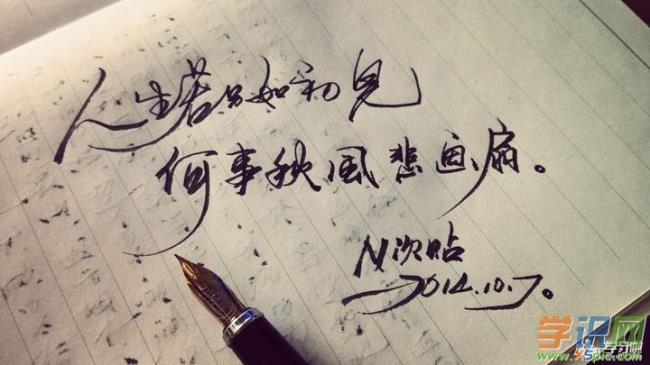 人生若只如初见
何事秋风悲画扇。
N次贴
2014.10.7。
学识网
www.xs5pbl.com